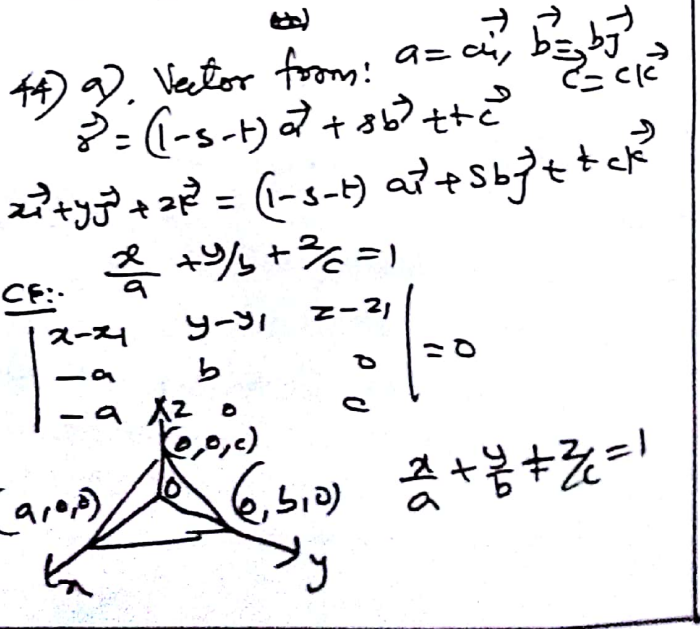 44) a). Vector form: a⃗ = ai⃗, b⃗ = bj⃗
c⃗ = ck⃗
r⃗ = (1-s-t) a⃗ + sb⃗ + tc⃗
xi⃗ + yj⃗ + zk⃗ = (1-s-t) ai⃗ + sbj⃗ + tck⃗
x/a + y/b + z/c = 1
CF:-
| x-x₁ y-y₁ z-z₁ |
| -a b 0 | = 0
| -a 0 c |
z
(0,0,c)
x/a + y/b + z/c = 1
(a,0,0) 0 (0,b,0)
x y